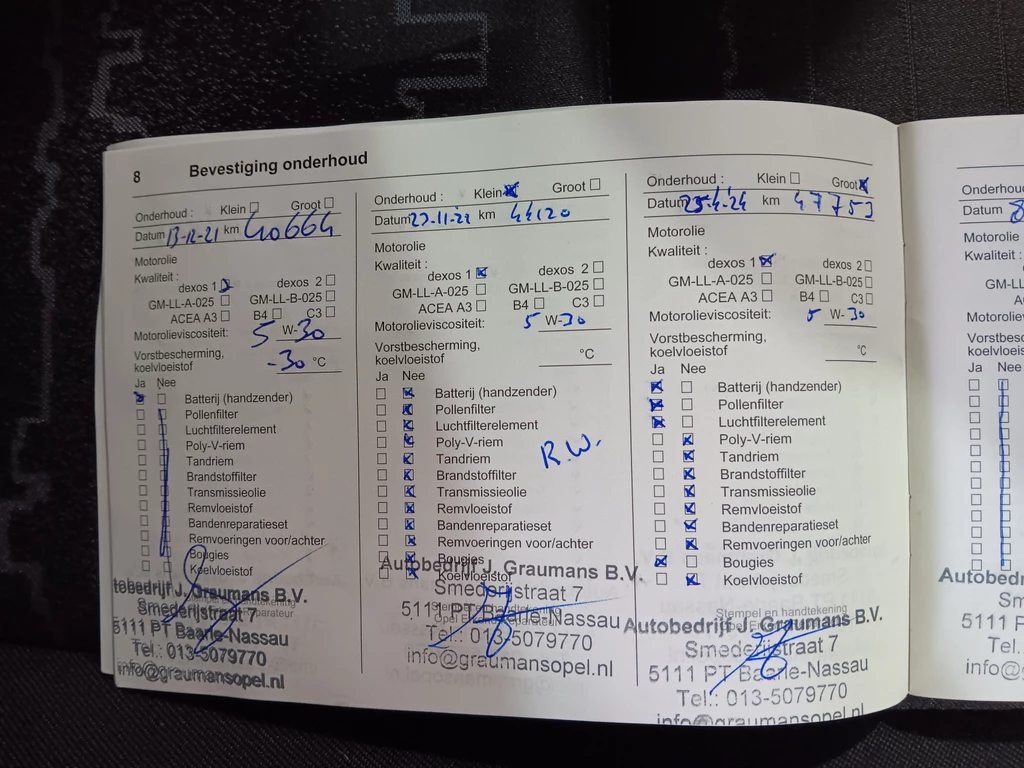 8 Bevestiging onderhoud
Onderhoud : Klein Groot
Datum 13-12-21 km 40664
Motorolie
Kwaliteit :
dexos 1 dexos 2
GM-LL-A-025 GM-LL-B-025
ACEA A3 B4 C3
Motorolieviscositeit: 5 W-30
Vorstbescherming,
koelvloeistof -30 °C
Ja Nee
Batterij (handzender)
Pollenfilter
Luchtfilterelement
Poly-V-riem
Tandriem
Brandstoffilter
Transmissieolie
Remvloeistof
Bandenreparatieset
Remvoeringen voor/achter
Bougies
Koelvloeistof
tobedrijf J. Graumans B.V.
Smederijstraat 7
5111 PT Baarle-Nassau
Tel.: 013-5079770
info@graumansopel.nl
Onderhoud : Klein Groot
Datum km 44120
Motorolie
Kwaliteit :
dexos 1 dexos 2
GM-LL-A-025 GM-LL-B-025
ACEA A3 B4 C3
Motorolieviscositeit: 5 W-30
Vorstbescherming,
koelvloeistof °C
Ja Nee
Batterij (handzender)
Pollenfilter
Luchtfilterelement
Poly-V-riem
Tandriem R.W.
Brandstoffilter
Transmissieolie
Remvloeistof
Bandenreparatieset
Remvoeringen voor/achter
Bougies
Koelvloeistof
Autobedrijf J. Graumans B.V.
Smederijstraat 7
5111 PT Baarle-Nassau
Tel.: 013-5079770
info@graumansopel.nl
Onderhoud : Klein Groot
Datum 25-4-24 km 47753
Motorolie
Kwaliteit :
dexos 1 dexos 2
GM-LL-A-025 GM-LL-B-025
ACEA A3 B4 C3
Motorolieviscositeit: 5 W-30
Vorstbescherming,
koelvloeistof °C
Ja Nee
Batterij (handzender)
Pollenfilter
Luchtfilterelement
Poly-V-riem
Tandriem
Brandstoffilter
Transmissieolie
Remvloeistof
Bandenreparatieset
Remvoeringen voor/achter
Bougies
Koelvloeistof
Stempel en handtekening
Autobedrijf J. Graumans B.V.
Smederijstraat 7
5111 PT Baarle-Nassau
Tel.: 013-5079770
info@graumansopel.nl
Onderhoud
Datum 8
Motorolie
Kwaliteit :
GM-LL
AC
Motorolie
Vorstbesc
koelvloeis
Ja Nee
Autobedr
Sm
5111
Tel.
info@